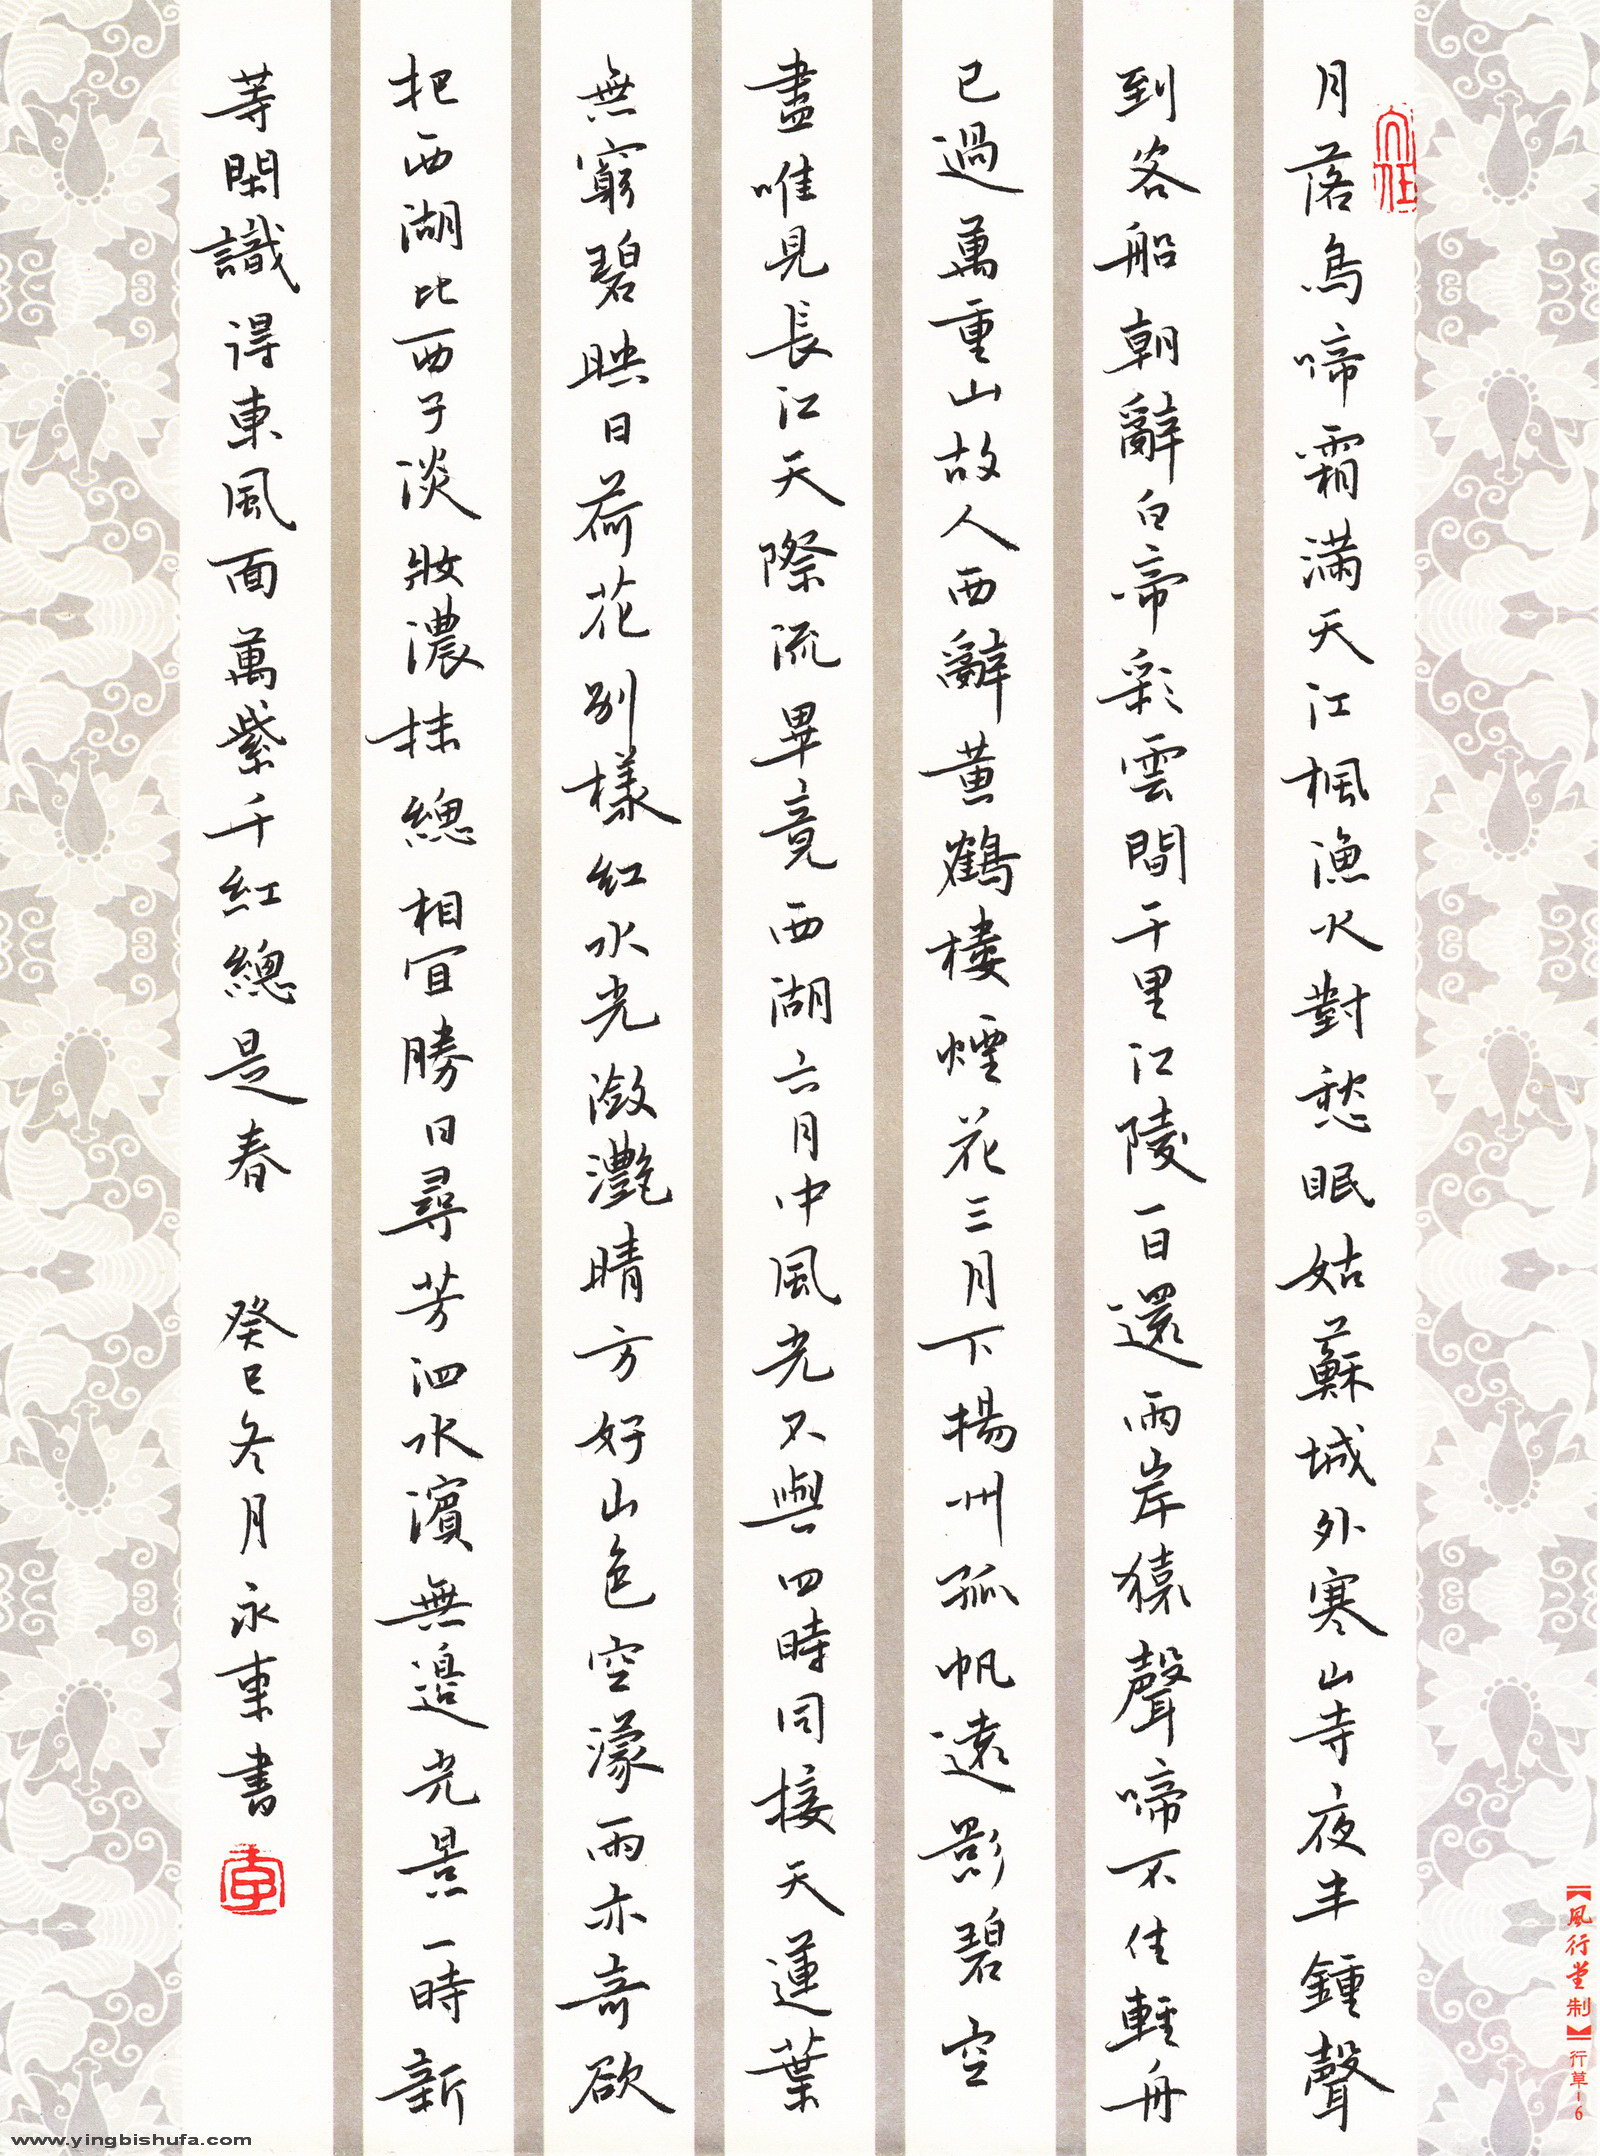 月落烏啼霜滿天江楓漁火對愁眠姑蘇城外寒山寺夜半鍾聲
到客船朝辭白帝彩雲間千里江陵一日還兩岸猿聲啼不住輕舟
已過萬重山故人西辭黃鶴樓煙花三月下揚州孤帆遠影碧空
盡唯見長江天際流畢竟西湖六月中風光不與四時同接天蓮葉
無窮碧映日荷花別樣紅水光瀲灩晴方好山色空濛雨亦奇欲
把西湖比西子淡妝濃抹總相宜勝日尋芳泗水濱無邊光景一時新
等閑識得東風面萬紫千紅總是春 癸巳冬月永東書
【風行堂制】行草-6
www.yingbishufa.com